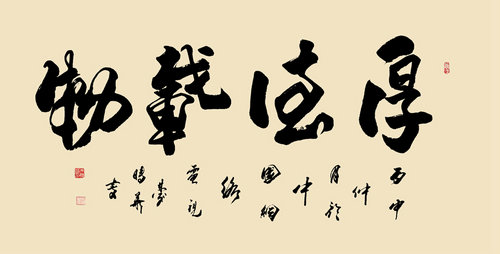 厚德載物
丙申
仲
月於
中
國網
絡
電視
臺
書